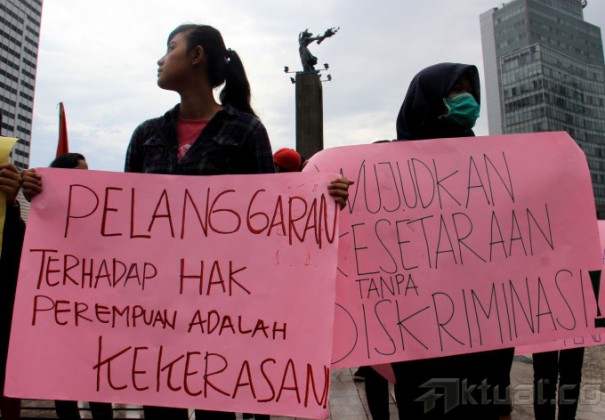 PELANGGARAN
TERHADAP HAK
PEREMPUAN ADALAH
KEKERASAN!
WUJUDKAN
KESETARAAN
TANPA
DISKRIMINASI!!
Aktual.co